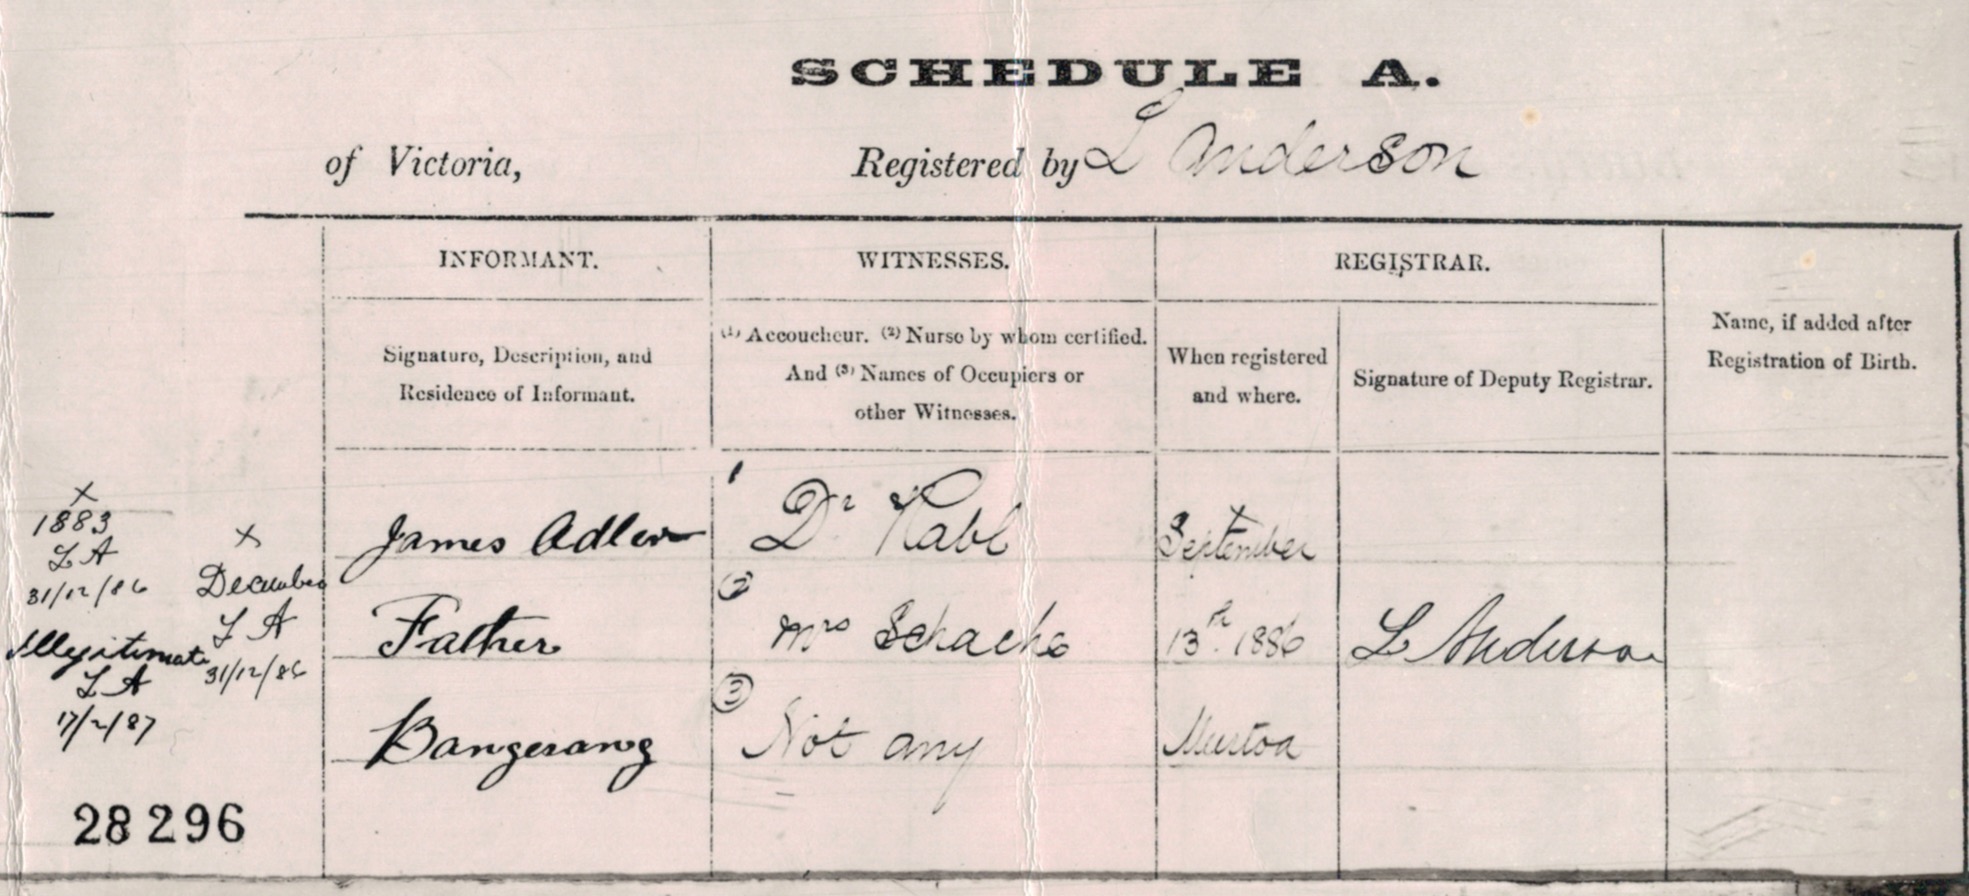 SCHEDULE A.
of Victoria, Registered by L Anderson
INFORMANT. WITNESSES. REGISTRAR.
Signature, Description, and
Residence of Informant.
(1) Accoucheur. (2) Nurse by whom certified.
And (3) Names of Occupiers or
other Witnesses.
When registered
and where.
Signature of Deputy Registrar.
Name, if added after
Registration of Birth.
x
1883
L A
31/12/86
Illegitimate
L A
17/2/87
x
December
L A
31/12/86
28296
James Adler
Father
Bangerang
1 Dr Rabl
(2) Mrs Schache
(3) Not any
September
13th 1886
Murtoa
L Anderson